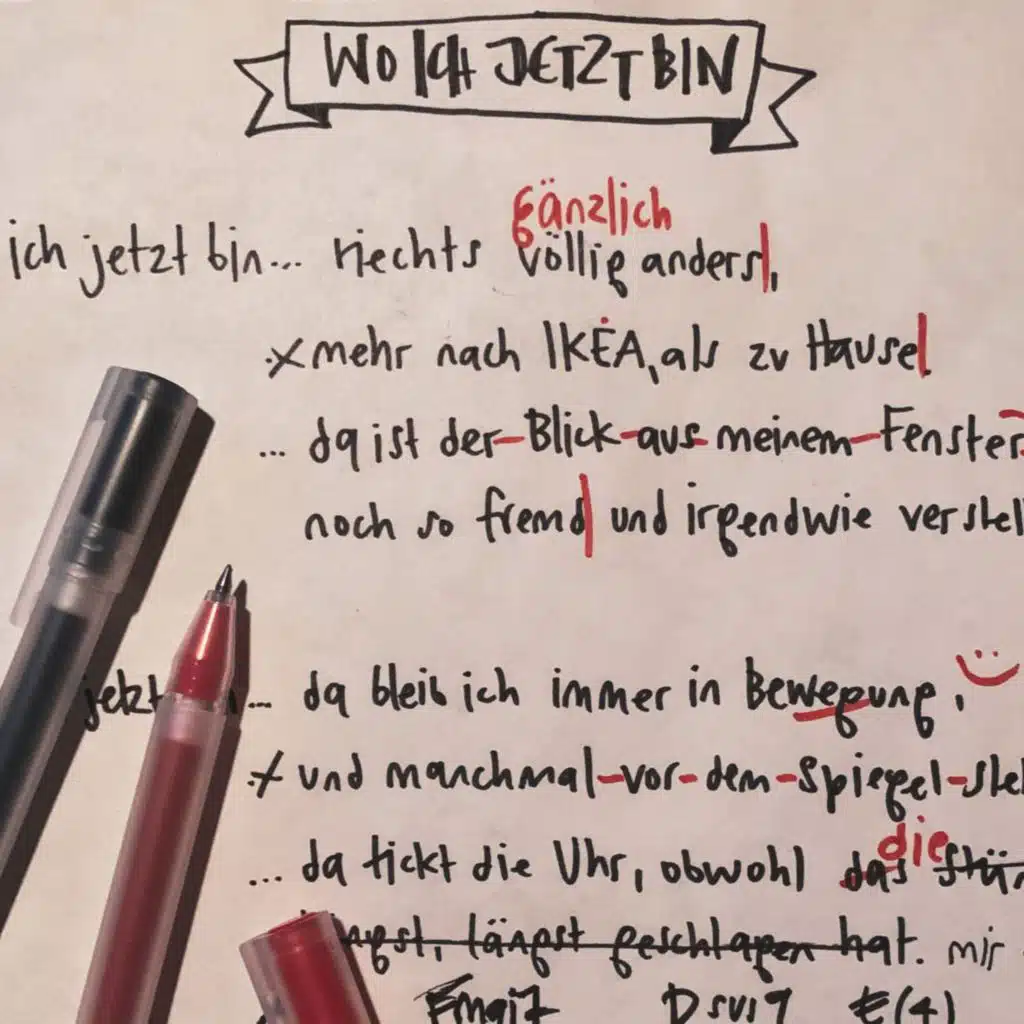 WO ICH JETZT BIN
gänzlich
ich jetzt bin... riechts völlig anders,
mehr nach IKEA, als zu Hause
... da ist der Blick aus meinem Fenster
noch so fremd und irgendwie verstel
jetzt ... da bleib ich immer in Bewegung,
und manchmal vor dem Spiegel
die
... da tickt die Uhr, obwohl das
längst geschlagen hat. mir
Emaj7 Dsus7 E(4)